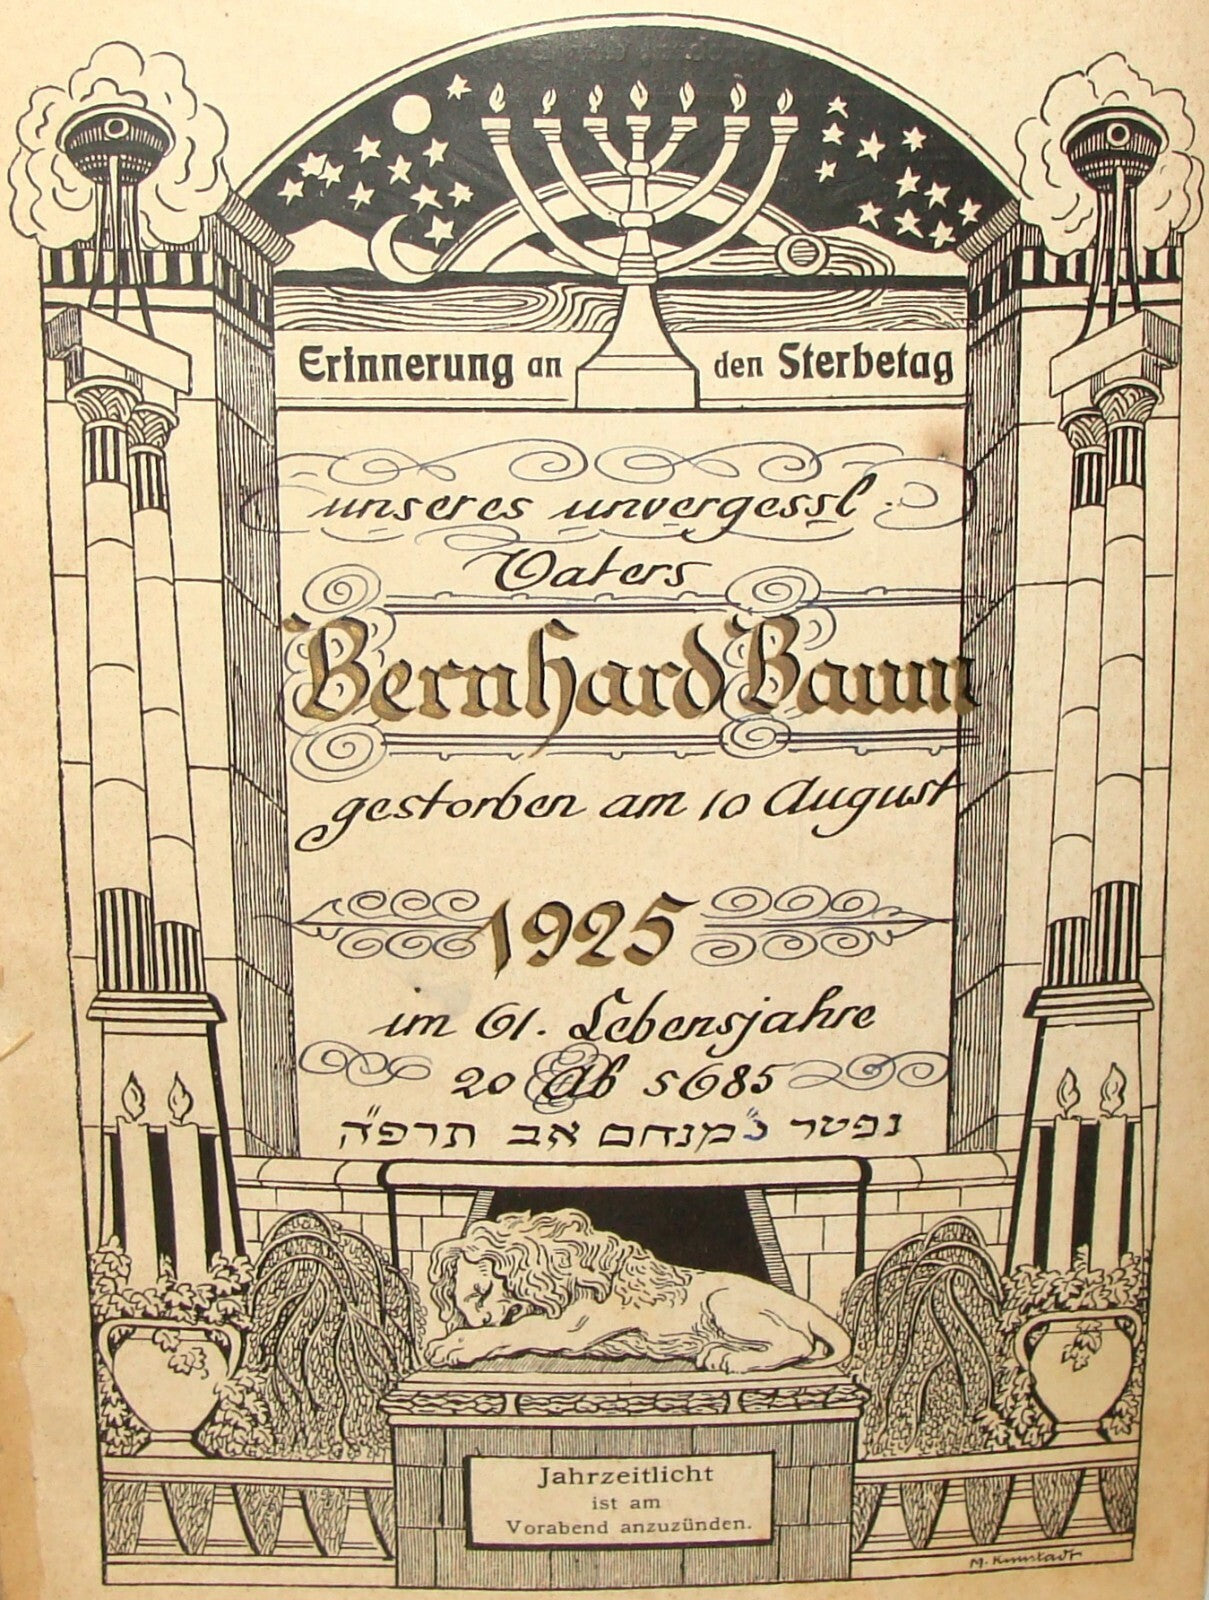 Erinnerung an den Sterbetag
unseres unvergessl.
Vaters
Bernhard Baum
gestorben am 10 August
1925
im 61. Lebensjahre
20 Ab 5685
נפטר כ״מנחם אב תרפ״ה
Jahrzeitlicht
ist am
Vorabend anzuzünden.